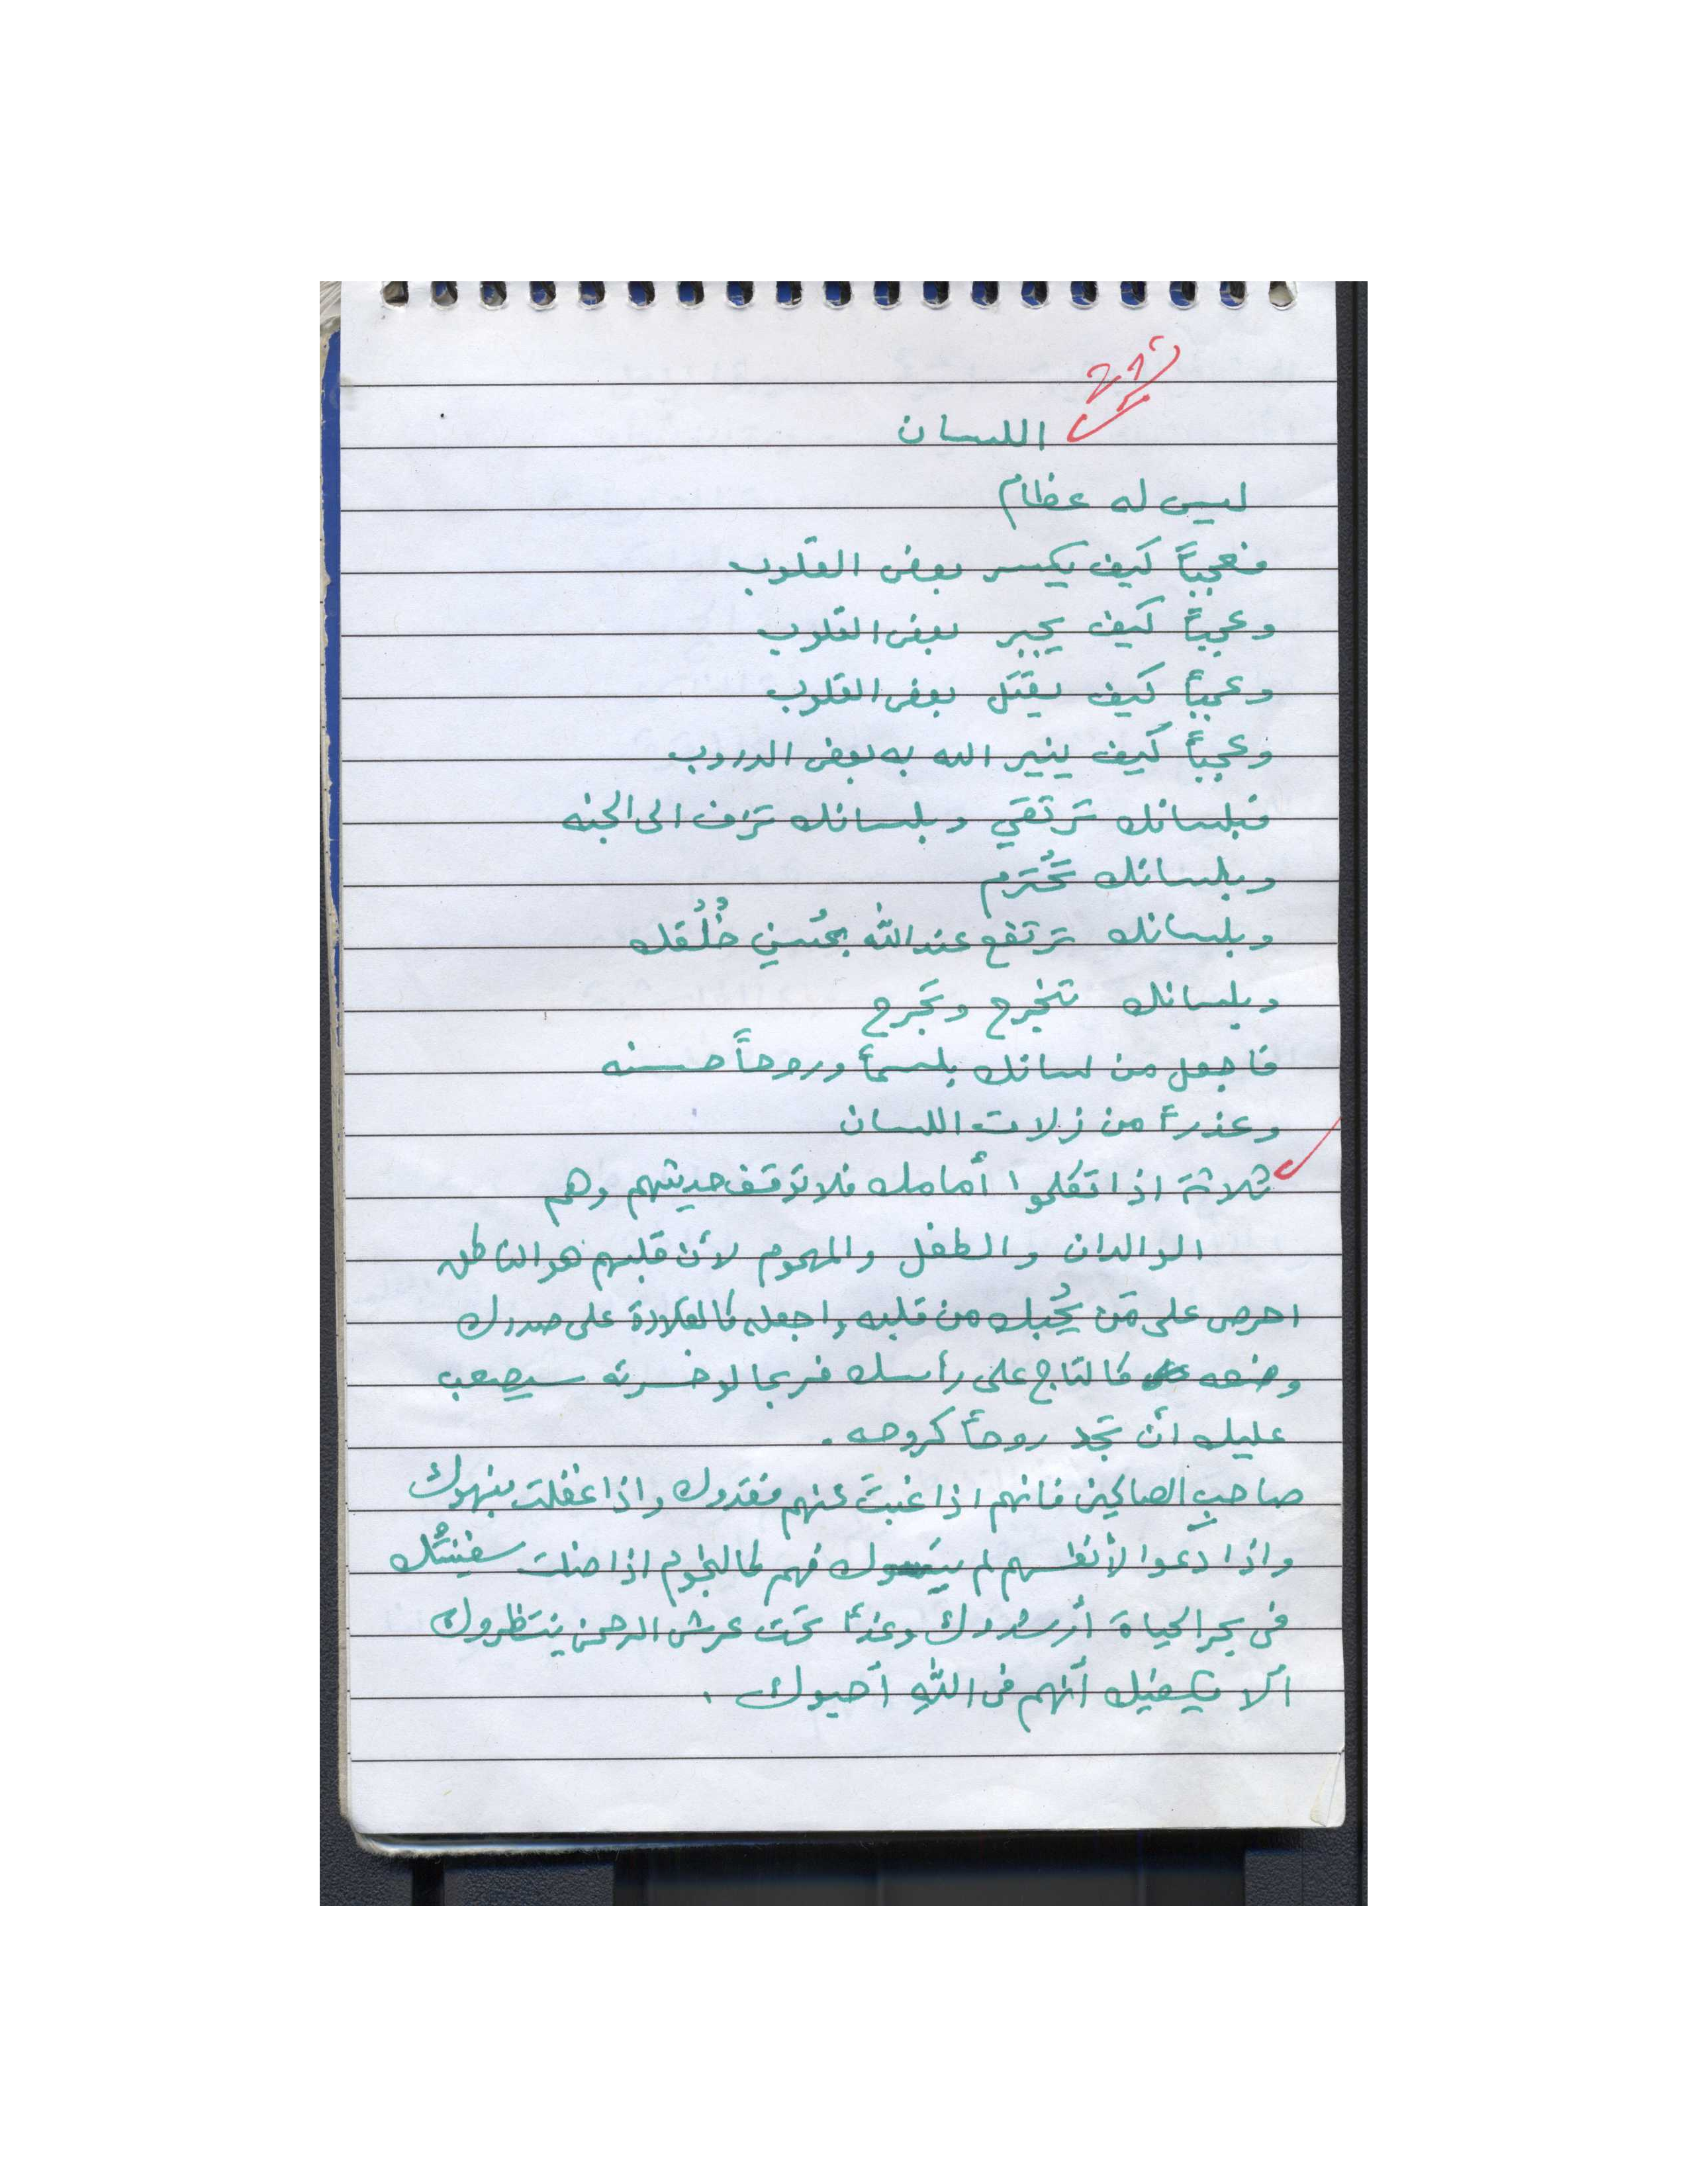 اللسان
ليس له عظام
فعجباً كيف يكسر بعض القلوب
وعجباً كيف يجبر بعض القلوب
وعجباً كيف يقتل بعض القلوب
وعجباً كيف ينير الله به بعض الدروب
فبلسانك ترتقي وبلسانك تزف الى الجنه
وبلسانك تُحترم
وبلسانك ترتفع عند الله بحُسنِ خُلُقك
وبلسانك تنجرح وتجرح
فاجعل من لسانك بلسماً وروحاً حسنه
وعذراً من زلات اللسان
ثلاثة اذا تكلموا أمامك فلا توقف حديثهم وهم
الوالدان والطفل والمهموم لأن قلبهم هو الناطق
احرص على مَن يُحبك من قلبه واجعله كالقلادة على صدرك
وضعه كالتاج على رأسك فربما لو خسرته سيصعب
عليك أن تجد روحاً كروحه .
صاحبِ الصالحين فانهم اذا غبتَ عنهم فقدوك واذا غفلت نبهوك
واذا دَعوا لأنفسهم لم ينسوك فهم كالنجوم اذا ضلت سفينتُك
في بحر الحياة أرشدوك وغداً تحت عرش الرحمن ينتظروك
ألا يكفيك أنهم في اللهِ أحبوك .